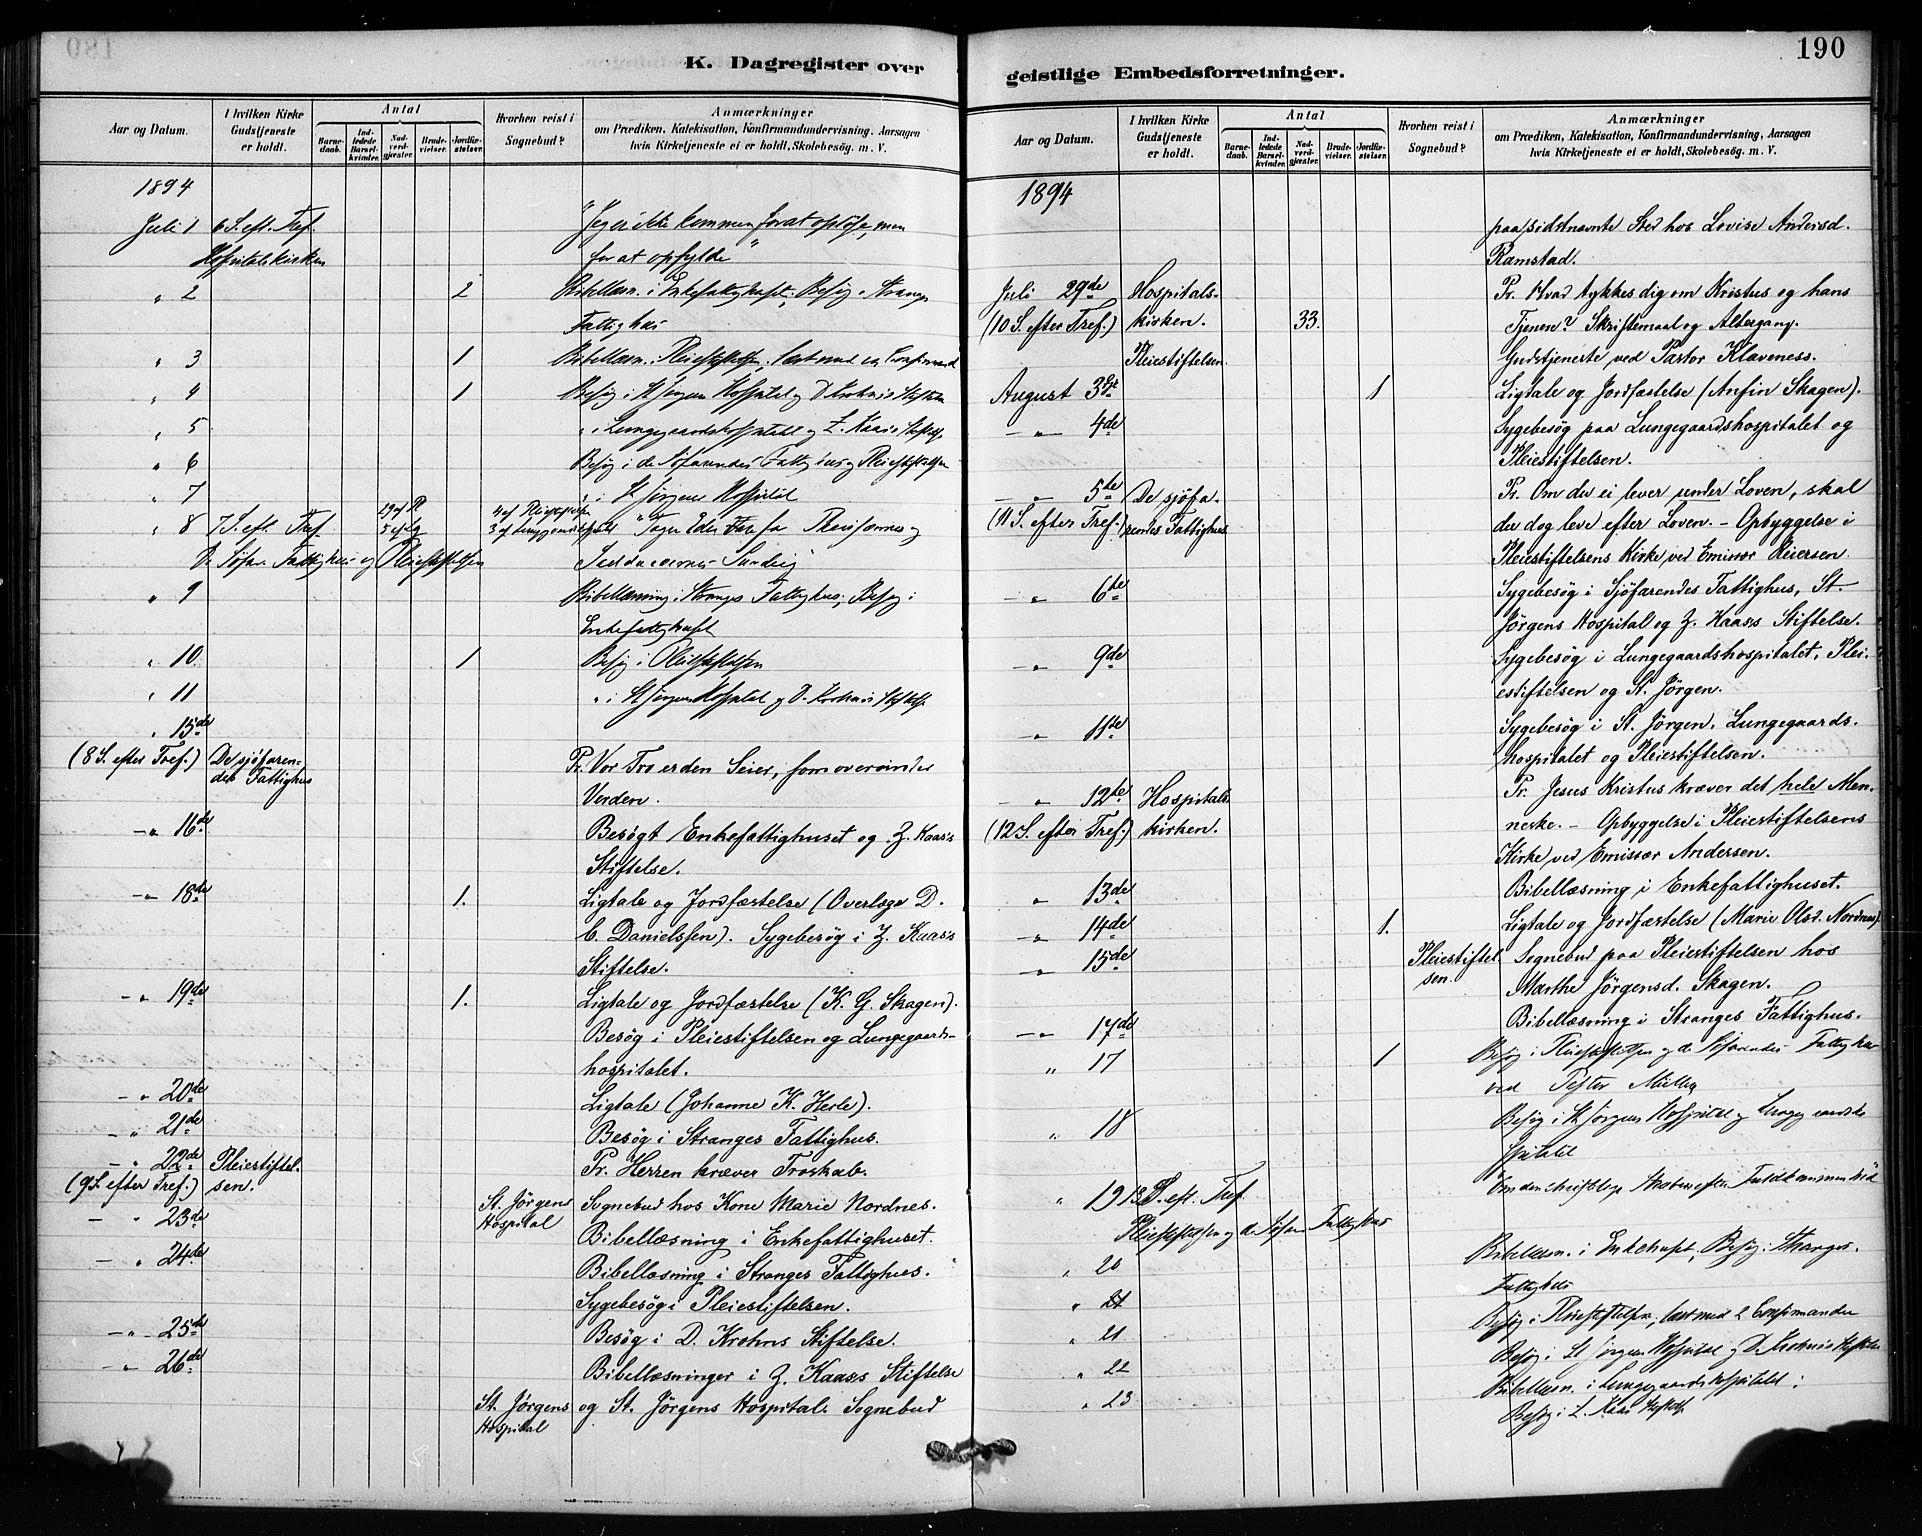 190
K. Dagregister over
Aar og Datum.
I hvilken Kirke Gudstjeneste er holdt.
Antal
Barnedaab.
Indledede Barselkvinder.
Nadverdgjæster.
Brudevielser.
Jordfæstelser.
Hvorhen reist i Sognebud?
Anmærkninger
om Prædiken, Katekisation, Konfirmandundervisning, Aarsagen
hvis Kirketjeneste ei er holdt, Skolebesøg. m. V.
1894
Juli 1 6 S. eft. Tref. "Jeg er ikke kommen for at opløse, men
Hospitalskirken for at opfylde"
" 2 2 Bibellæsn. i Enkefattighuset, Besøg i Stranges
Fattighus
" 3 1 Bibellæsn. i Pleiestiftelsen,
" 4 1 Besøg i St Jørgens Hospital og D Krohns Stiftelse
" 5 " i Lungegaardshospitalet og Z. Kaas's Stiftelse
" 6 Besøg i de Søfarendes Fattighus og Pleiestiftelsen
" 7 " i St Jørgens Hospital
" 8 7 S. eft. Tref. 5 af Lg 4 af Pleiestiftelsen
De Søfar. Fattighus og Pleiestiftelsen
" 9 Bibellæsning i Stranges Fattighus, Besøg i
Enkefattighuset
" 10 1 Besøg i Pleiestiftelsen
" 11 " i St Jørgens Hospital og D. Krohns Stiftelse
" 15de
(8 S. efter Tref.) De sjøfarendes Fattighus Pr. Vor Tro er den Seier, som overvinder
Verden.
- " 16de Besøgt Enkefattighuset og Z. Kaas's
Stiftelse.
- " 18de 1. Ligtale og Jordfæstelse (Overlæge D.
C. Danielssen). Sygebesøg i Z. Kaas's
Stiftelse.
- " 19de 1. Ligtale og Jordfæstelse (K. G. Skagen).
Besøg i Pleiestiftelsen og Lungegaards-
hospitalet.
- " 20de Ligtale (Johanne K. Herle).
- " 21de Besøg i Stranges Fattighus.
- " 22de Pleiestiftel- Pr. Herren kræver Troskab.
(9 S. efter Tref.) sen.
- " 23de St. Jørgens Hospital Sognebud hos Kone Marie Nordnes.
Bibellæsning i Enkefattighuset.
- " 24de Bibellæsning i Stranges Fattighus.
Sygebesøg i Pleiestiftelsen.
- " 25de Besøg i D. Krohns Stiftelse.
- " 26de Bibellæsninger i Z. Kaas's Stiftelse
St. Jørgens Hospital og St. Jørgens Hospital. Sognebud
geistlige Embedsforretninger.
Aar og Datum.
I hvilken Kirke Gudstjeneste er holdt.
Antal
Barnedaab.
Indledede Barselkvinder.
Nadverdgjæster.
Brudevielser.
Jordfæstelser.
Hvorhen reist i Sognebud?
Anmærkninger
om Prædiken, Katekisation, Konfirmandundervisning, Aarsagen
hvis Kirketjeneste ei er holdt, Skolebesøg. m. V.
1894
paa sidstnævnte Sted hos Lovise Andersd.
Ramstad.
Juli 29de Hospitals- Pr. Hvad tykkes dig om Kristus og hans
(10 S. efter Tref.) kirken. 33. Tjenen? Skriftemaal og Altergang.
Pleiestiftelsen. Gudstjeneste ved Pastor Klaveness.
August 3die 1 Ligtale og Jordfæstelse (Anfin Skagen).
- " - 4de Sygebesøg paa Lungegaardshospitalet og
Pleiestiftelsen.
- " 5te De sjøfa- Pr. Om du ei lever under Loven, skal
(11 S. efter Tref.) rendes Fattighus du dog leve efter Loven. - Opbyggelse i
Pleiestiftelsens Kirke ved Emissær Reiersen.
- " 6te Sygebesøg i Sjøfarendes Fattighus, St.
Jørgens Hospital og Z. Kaas's Stiftelse.
- " 9de Sygebesøg i Lungegaardshospitalet, Plei-
estiftelsen og St. Jørgen.
" 11te Sygebesøg i St. Jørgen, Lungegaards-
hospitalet og Pleiestiftelsen.
- " 12te Hospitals- Pr. Jesus Kristus kræver det hele Men-
(12 S. efter Tref.) kirken. neske. - Opbyggelse i Pleiestiftelsens
Kirke ved Emissær Andersen.
" 13de Bibellæsning i Enkefattighuset.
- " 14de 1. Ligtale og Jordfæstelse (Marie Olsd. Nordnes).
" 15de Pleiestiftelsen. Sognebud paa Pleiestiftelsen hos
Marthe Jørgensd. Skagen.
- " 17de Bibellæsning i Stranges Fattighus.
" 17 1 Besøg i Pleiestiftelsen og de Søfarendes Fattighus
ved
" 18 Besøg i St Jørgens Hospital og Lungegaardsho-
spitalet
" 19 13 S. eft. Tref.
Pleiestiftelsen og de Søfar. Fattighus
" 20 Bibellæsn. i Enkehuset, Besøg i Stranges
Fattighus
" 21 Besøg i Pleiestiftelsen, læst med 2 Confirmander
" 21 Besøg i St Jørgens Hospital og D. Krohns Stiftelse
" 22 Bibellæsn. i Lungegaardshospitalet;
" 23 Besøg i Z. Kaas Stiftelse